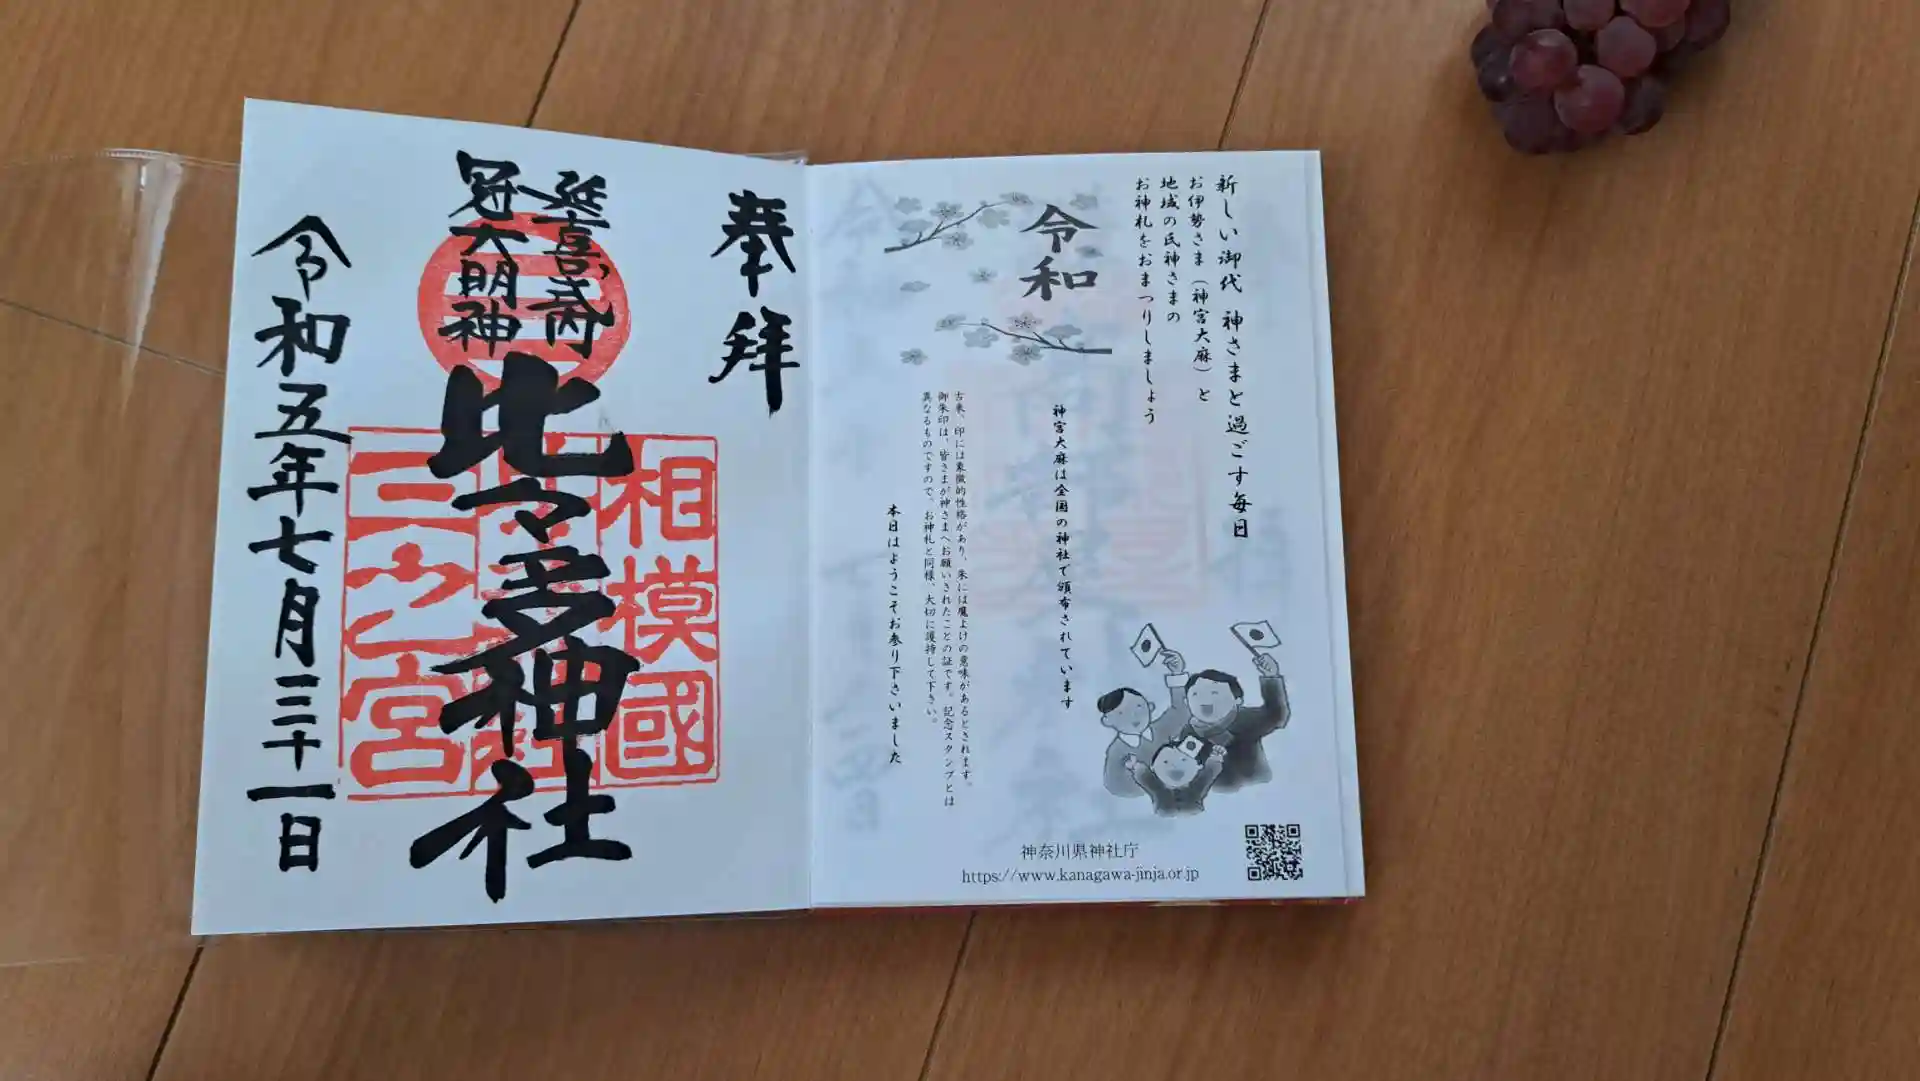 新しい御代 神さまと過ごす毎日
お伊勢さま（神宮大麻）と
地域の氏神さまの
お神札をおまつりしましょう
令和
神宮大麻は全国の神社で頒布されています
古来、印には象徴的性格があり、朱には魔よけの意味があるとされます。
御朱印は、皆さまが神さまへお願いされたことの証です。記念スタンプとは
異なるものですので、お神札と同様、大切に護持して下さい。
本日はようこそお参り下さいました
神奈川県神社庁
https://www.kanagawa-jinja.or.jp
奉拝
延喜式内
冠大明神
比々多神社
相模國
三之宮
令和五年七月三十一日